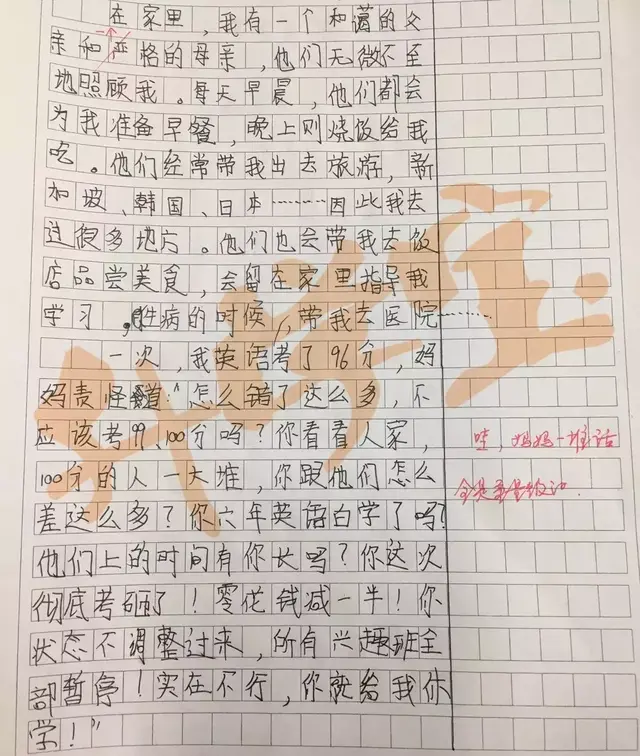 在家里，我有一个和蔼的父
亲和一严格的母亲，他们无微不至
地照顾我。每天早晨，他们都会
为我准备早餐，晚上则烧饭给我
吃。他们经常带我出去旅游，新
加坡、韩国、日本………因此我去
过很多地方。他们也会带我去饭
店品尝美食，会留在家里指导我
学习，生病的时候，带我去医院………
一次，我英语考了96分，妈
妈责怪道：“怎么错了这么多，不
应该考99、100分吗？你看看人家，
100分的人一大堆，你跟他们怎么
差这么多？你六年英语白学了吗？
他们上的时间有你长吗？你这次
彻底考砸了！零花钱减一半！你
状态不调整过来，所有兴趣班全
部暂停！实在不行，你就给我休
学！”
哇，妈妈一堆话
全是
升学宝